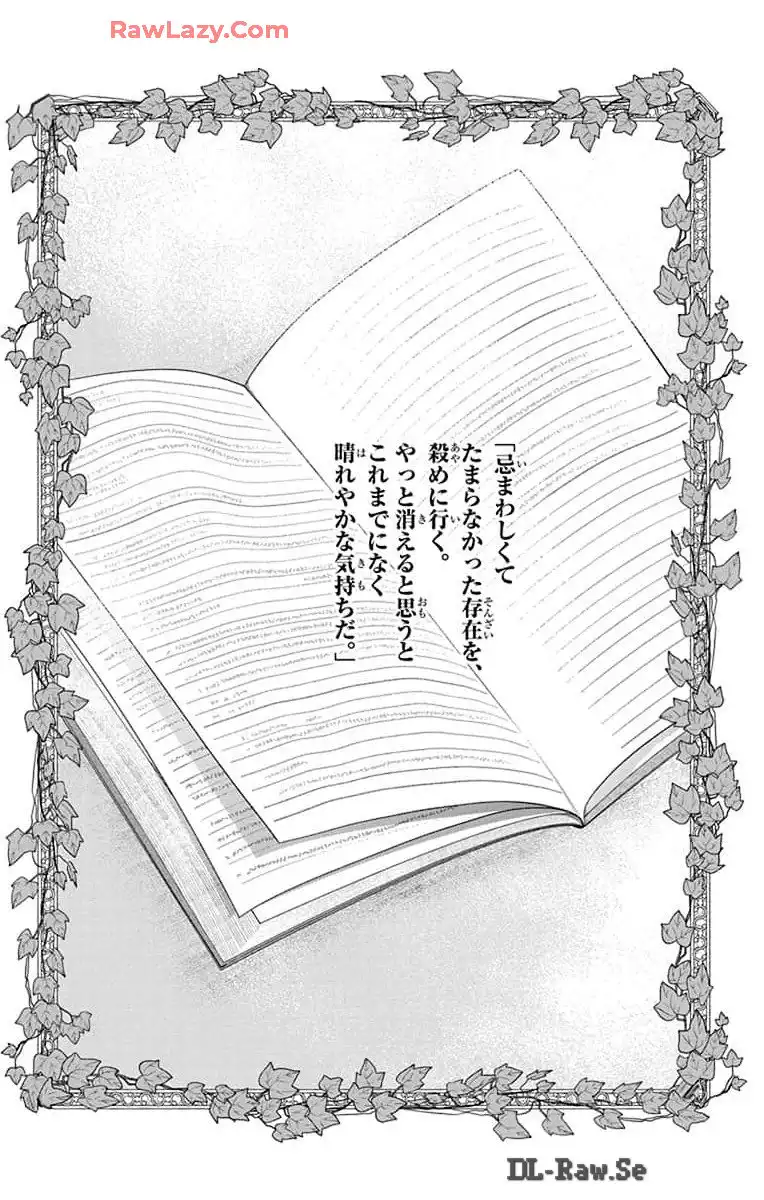 RawLazy.Com
「忌まわしくて
たまらなかった存在を、
殺めに行く。
やっと消えると思うと
これまでになく
晴れやかな気持ちだ。」
DL-Raw.Se